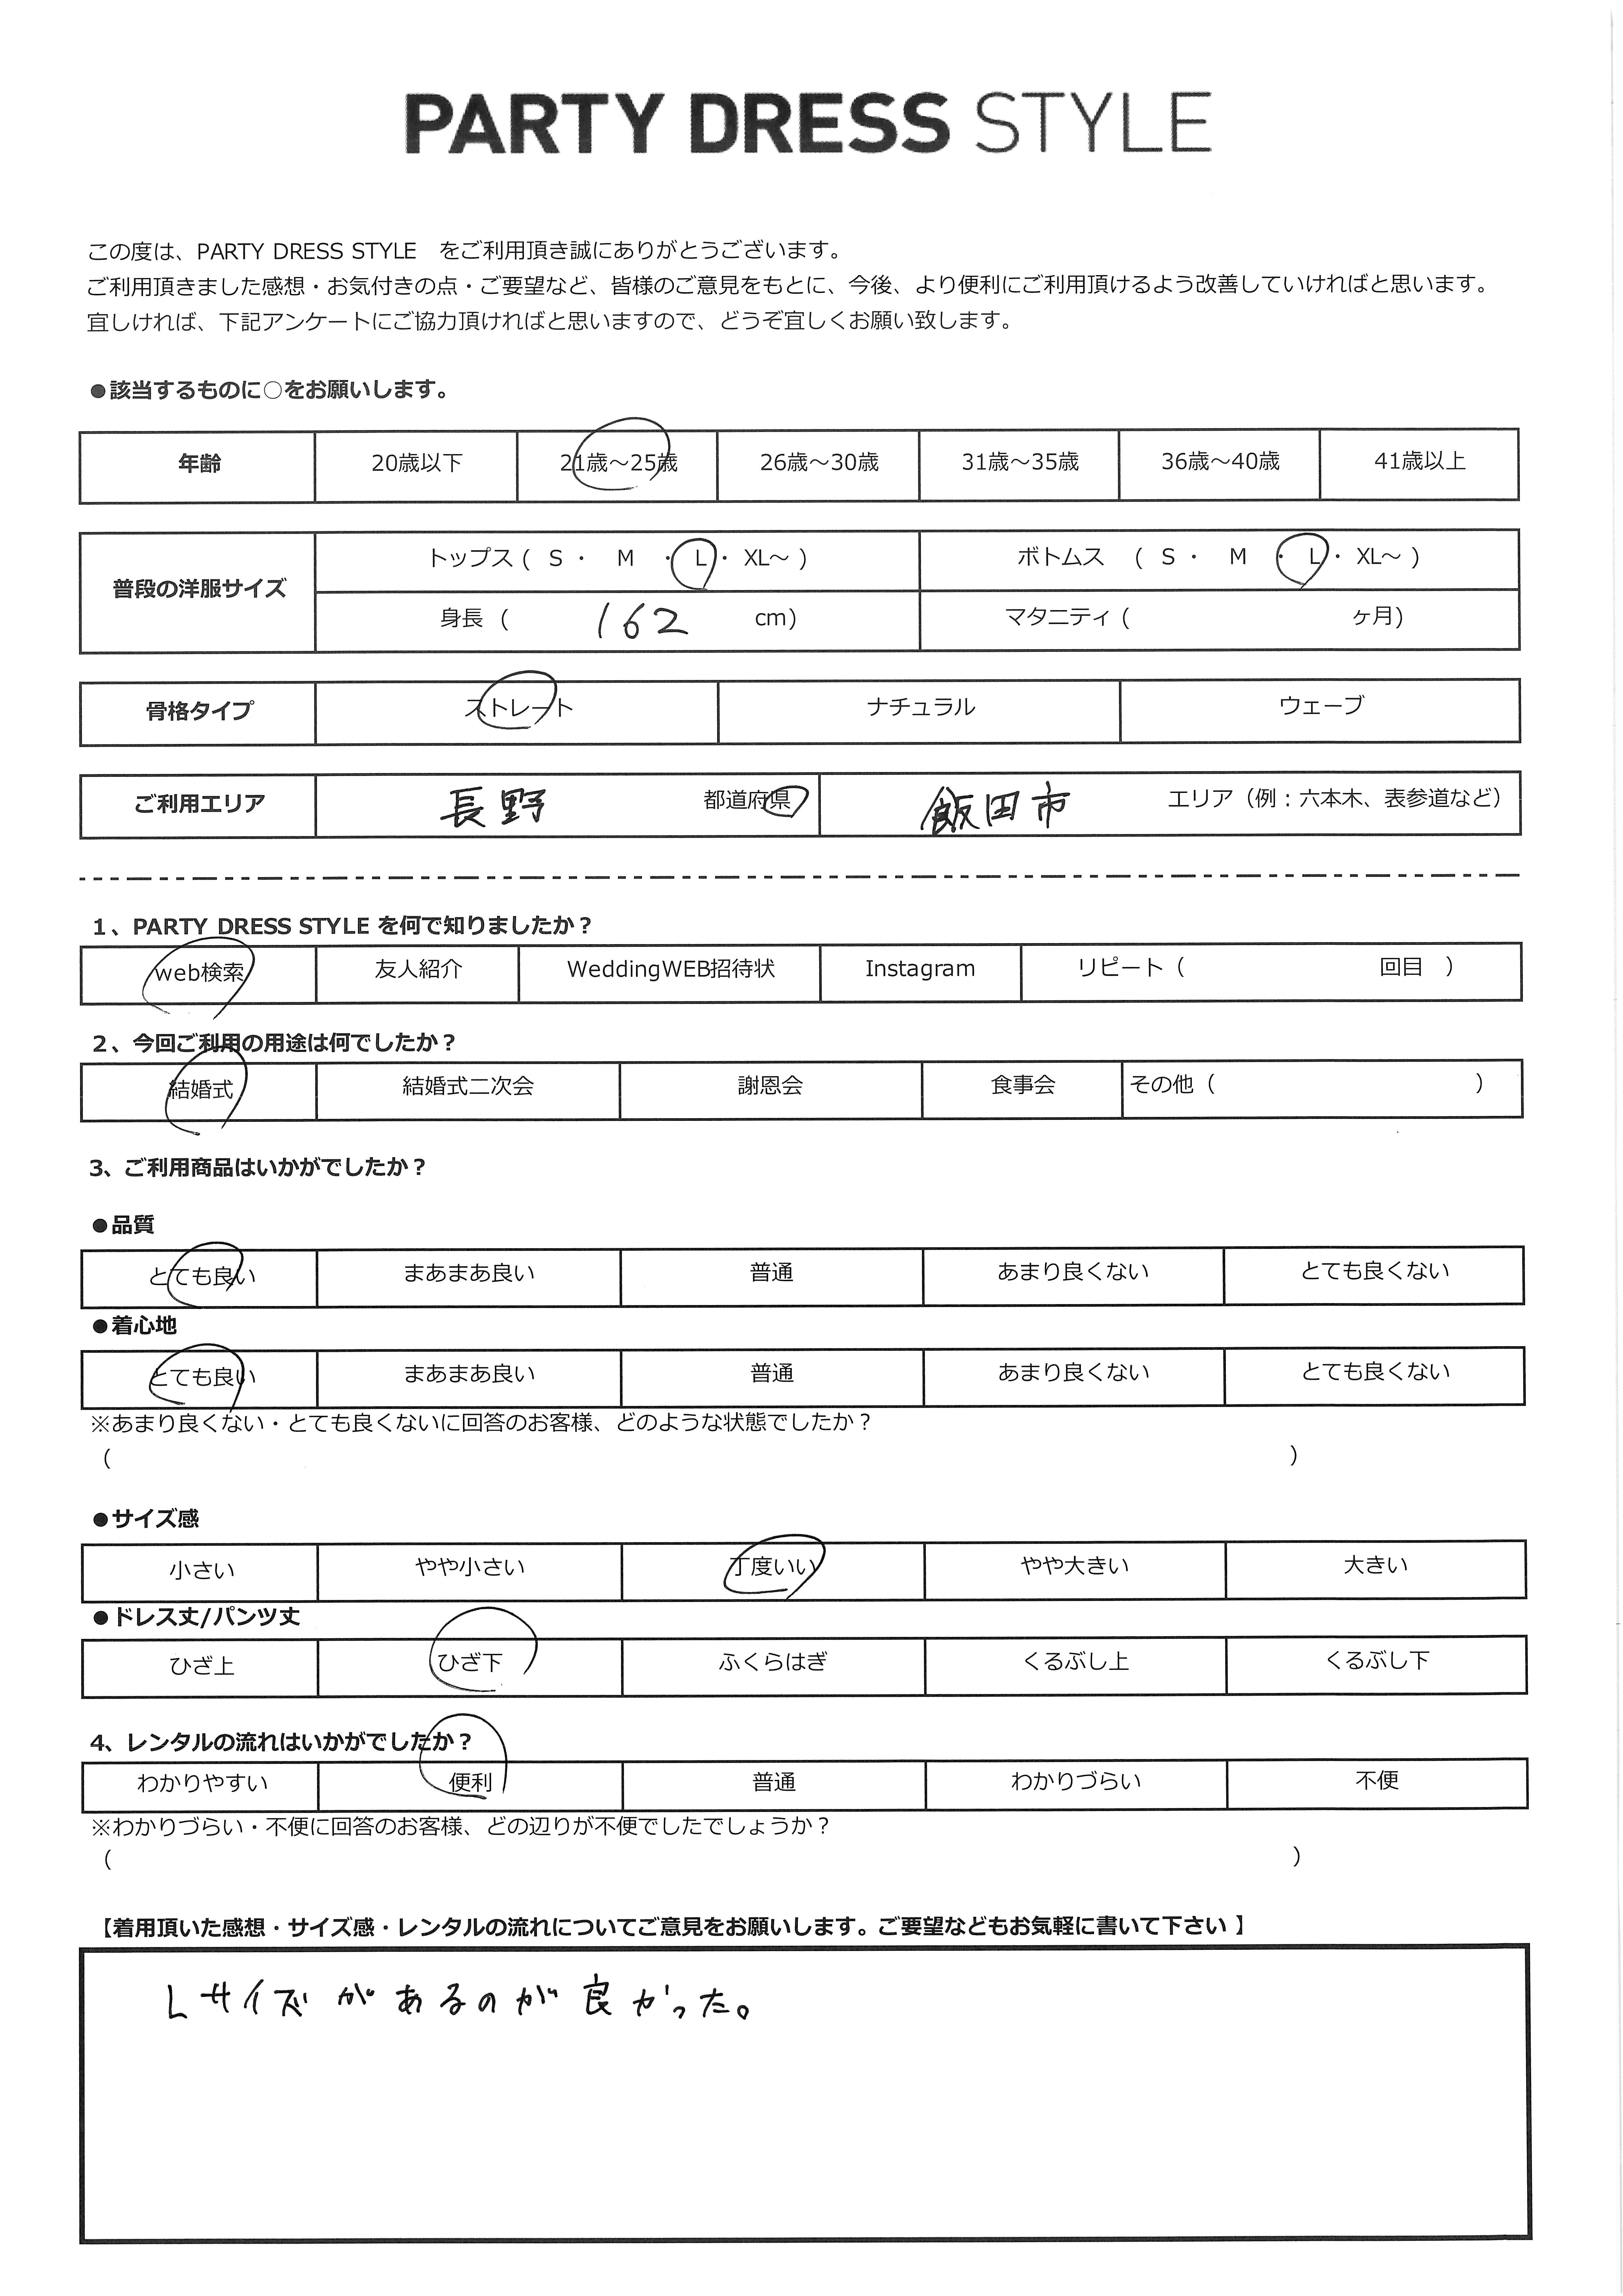 PARTY DRESS STYLE
この度は、PARTY DRESS STYLE　をご利用頂き誠にありがとうございます。
ご利用頂きました感想・お気付きの点・ご要望など、皆様のご意見をもとに、今後、より便利にご利用頂けるよう改善していければと思います。
宜しければ、下記アンケートにご協力頂ければと思いますので、どうぞ宜しくお願い致します。
●該当するものに○をお願いします。
年齢 20歳以下 21歳～25歳 26歳～30歳 31歳～35歳 36歳～40歳 41歳以上
普段の洋服サイズ トップス ( S ・ M ・ L ・ XL～ ) ボトムス ( S ・ M ・ L ・ XL～ )
身長 ( 162 cm) マタニティ ( ヶ月)
骨格タイプ ストレート ナチュラル ウェーブ
ご利用エリア 長野 都道府県 飯田市 エリア（例：六本木、表参道など）
1、PARTY DRESS STYLE を何で知りましたか？
web検索 友人紹介 WeddingWEB招待状 Instagram リピート（ 回目 ）
2、今回ご利用の用途は何でしたか？
結婚式 結婚式二次会 謝恩会 食事会 その他（ ）
3、ご利用商品はいかがでしたか？
●品質
とても良い まあまあ良い 普通 あまり良くない とても良くない
●着心地
とても良い まあまあ良い 普通 あまり良くない とても良くない
※あまり良くない・とても良くないに回答のお客様、どのような状態でしたか？
（ ）
●サイズ感
小さい やや小さい 丁度いい やや大きい 大きい
●ドレス丈/パンツ丈
ひざ上 ひざ下 ふくらはぎ くるぶし上 くるぶし下
4、レンタルの流れはいかがでしたか？
わかりやすい 便利 普通 わかりづらい 不便
※わかりづらい・不便に回答のお客様、どの辺りが不便でしたでしょうか？
（ ）
【着用頂いた感想・サイズ感・レンタルの流れについてご意見をお願いします。ご要望などもお気軽に書いて下さい 】
Lサイズがあるのが良かった。